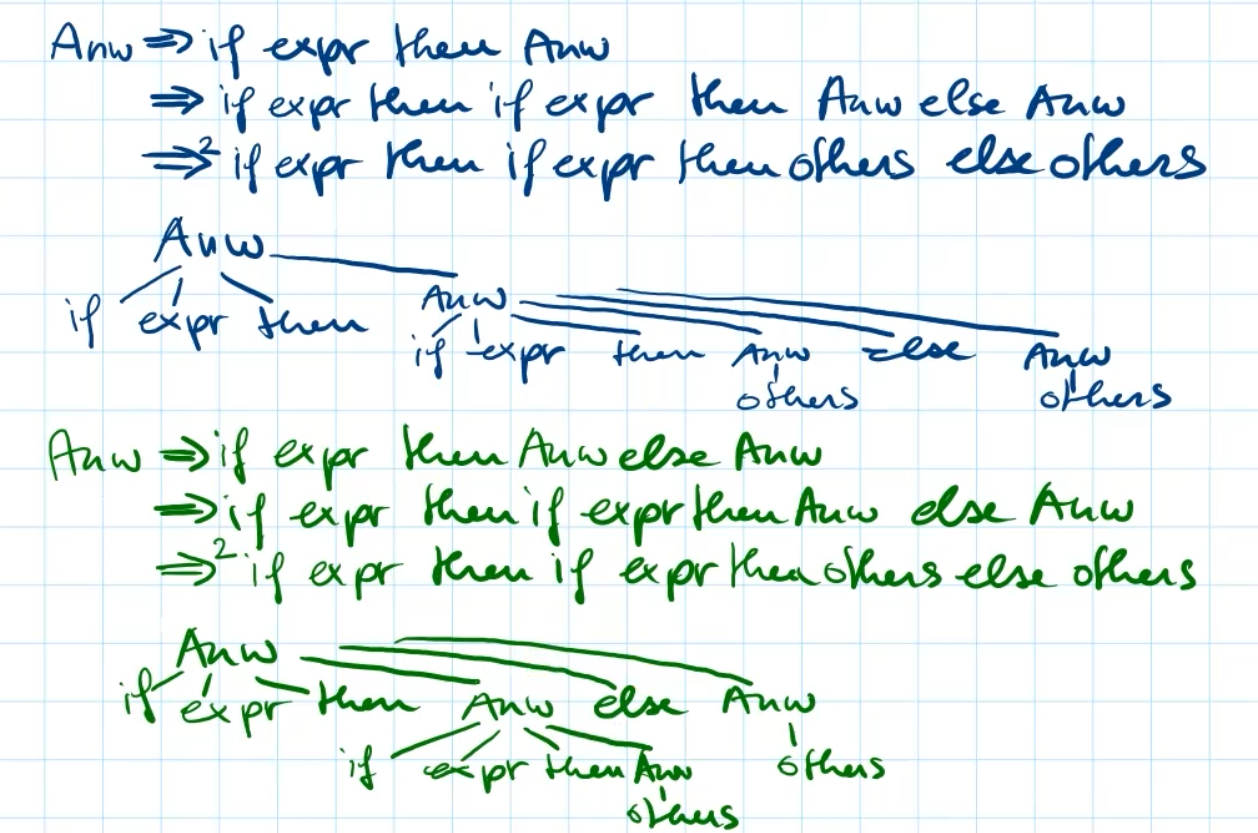 Anw ⇒ if expr then Anw
⇒ if expr then if expr then Anw else Anw
⇒² if expr then if expr then others else others
Anw
Anw
if expr then
if expr then Anw else Anw
others others
Anw ⇒ if expr then Anw else Anw
⇒ if expr then if expr then Anw else Anw
⇒² if expr then if expr then others else others
Anw
if expr then Anw else Anw
if expr then Anw others
others